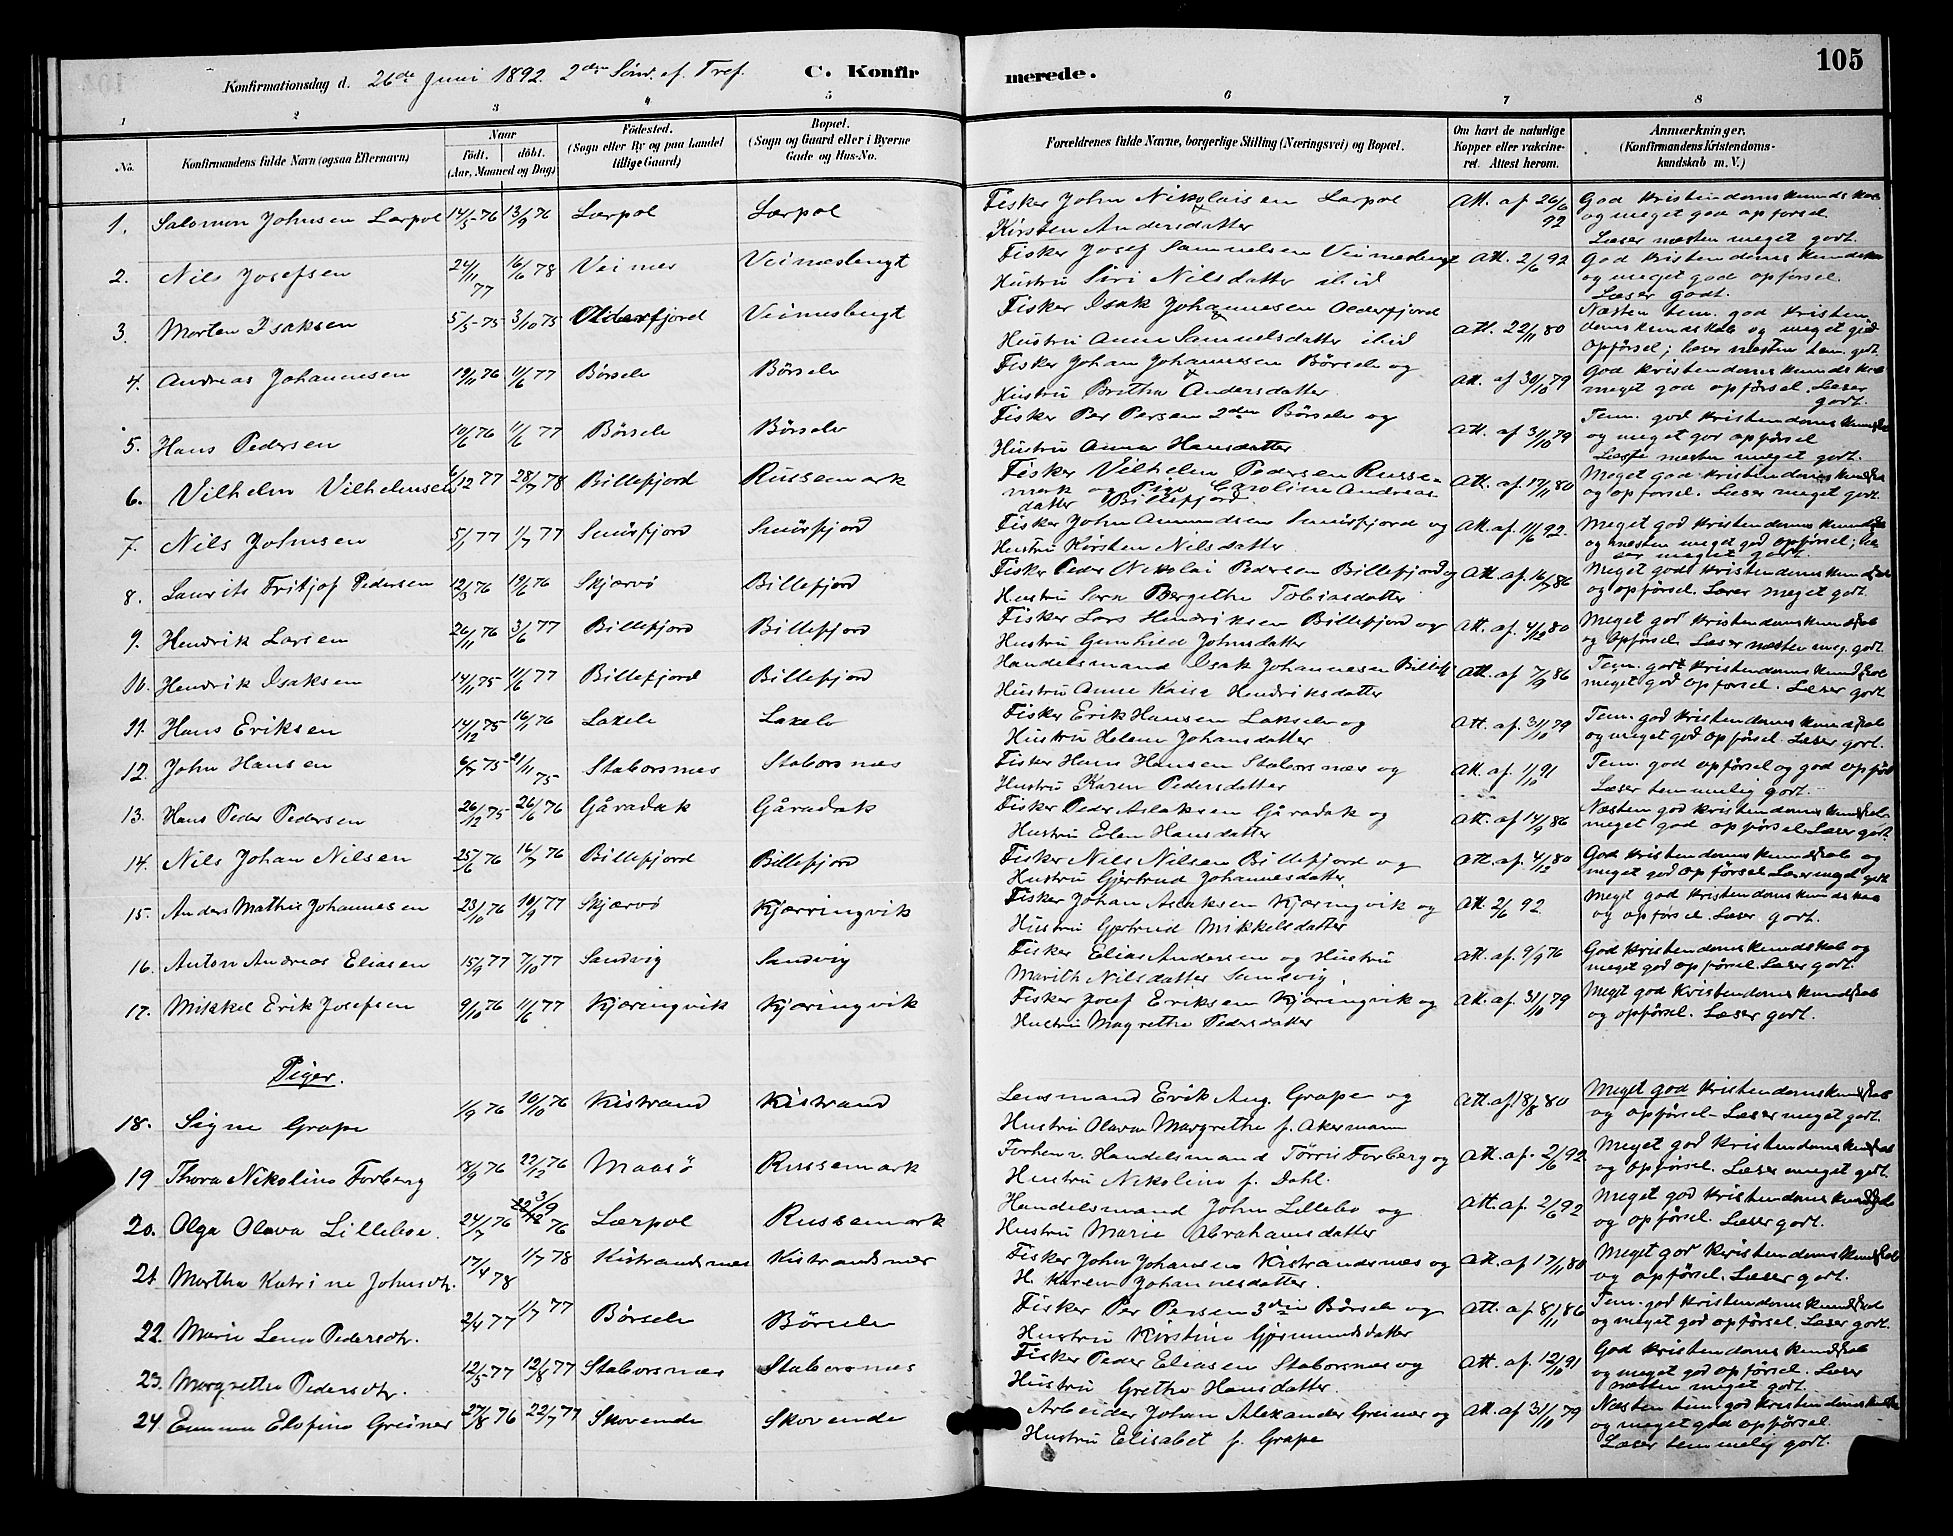 105
Konfirmationsdag d. 26de Juni 1892. 2den Sönd. ef. Tref. C. Konfirmerede.
1 2 3 4 5 6 7 8
No. Konfirmandens fulde Navn (ogsaa Efternavn) Naar födt. döbt. (Aar, Maaned og Dag) Födested. (Sogn eller By og paa Landet tillige Gaard) Bopæl. (Sogn og Gaard eller i Byerne Gade og Hus-No. Forældrenes fulde Navne, borgerlige Stilling (Næringsvei) og Bopæl. Om havt de naturlige Kopper eller vakcineret. Attest herom. Anmærkninger. (Konfirmandens Kristendomskundskab m. V.)
1. Salomon Johnsen Lærpol 14/5-76 13/9 76 Lærpol Lærpol Fisker John Nikolaisen Lærpol Att. af 26/6 92 God Kristendomskundskab
Kirsten Andersdatter og meget god opførsel.
Læser næsten meget godt.
2. Nils Josefsen 24/11 77 16/6 78 Veines Veinesbugt Fisker Josef Samuelsen Veinesbugt Att. 2/6 92 God Kristendomskundskab
Hustru Siri Nilsdatter ibid og meget god opførsel.
Læser godt.
3 Morten Isaksen 5/5-75 3/10 75 Olderfjord Veinesbugt Fisker Isak Johannesen Olderfjord Att. 22/11 80 Næsten tem. god Kristen-
Hustru Anna Samuelsdatter ibid domskundskab og meget god
opførsel; læser næsten tem. godt
4. Andreas Johannesen 19/11 76 11/6 77 Börselv Börselv Fisker Johan Johannesen Börselv og Att. af 30/10 79 God Kristendomskundskab
Hustru Brethe Andersdatter meget god opførsel. Læser
godt.
5. Hans Pedersen 10/6 76 11/6 77 Börselv Börselv Fisker Per Persen 2den Börselv og Att. af 31/10 79 Tem. god Kristendomskundskab
Hustru Anna Hansdatter og meget god opførsel
Læser næsten meget godt.
6. Vilhelm Vilhelmsen 6/12 77 28/7 78 Billefjord Russemark Fisker Vilhelm Pedersen Russe- Att. af. 17/11 80 Meget god Kristendomskundskab
mark og Pige Caroline Andreas- og opførsel. Læser meget godt.
datter Billefjord.
7. Nils Johnsen 5/1 77 1/7 77 Smörfjord Smörfjord Fisker John Amundsen Smörfjord og Att. af. 11/6 92. Meget god Kristendomskundskab
Hustru Kirsten Nilsdatter. og næsten meget god opførsel; læ
ser meget godt.
8. Laurits Fritjof Pedersen 12/3 76 19/6 76 Skjærvö Billefjord Fisker Peder Nikolai Pedersen Billefjord og Att. af. 16/7 86 Meget god Kristendomskundskab
Hustru Sara Bergethe Tobiasdatter og opførsel. Læser meget godt.
9. Hendrik Larsen 26/11 76 3/6 77 Billefjord Billefjord Fisker Lars Hendriksen Billefjord og Att. af. 4/12 80 Meget god Kristendomskundskab
Hustru Gunhild Johnsdatter og opførsel. Læser næsten meg. godt.
10. Hendrik Isaksen 14/11 75 11/6 77 Billefjord Billefjord Handelsmand Isak Johannesen Billefj Att. af. 7/9 86 Tem. god Kristendomskundskab
Hustru Anne Kaisa Hendriksdatter meget god opførsel. Læser godt
11. Hans Eriksen 14/12 75 16/1 76 Lakselv Lakselv Fisker Erik Hansen Lakselv og Att. af. 31/10 79 Tem. god Kristendomskundskab
Hustru Helene Johansdatter og meget god opførsel. Læser godt.
12. John Hansen 6/7 75 21/11 75 Staborsnes Staborsnes Fisker Hans Hansen Staborsnes og Att. af. 1/10 91 Tem. god opførsel og god opførsel
Hustru Karen Pedersdatter Læser temmelig godt.
13. Hans Peder Pedersen 26/12 75 26/6 76 Gåradak Gåradak Fisker Peder Aslaksen Gåradak og Att. af 14/9 86 Næsten god Kristendomskundskab
Hustru Elen Hansdatter meget god opførsel. Læser godt.
14. Nils Johan Nilsen 25/6 76 16/7 76 Billefjord Billefjord Fisker Nils Nilsen Billefjord og Att. af. 4/12 80 God Kristendomskundskab og
Hustru Gjertrud Johannesdatter. meget god opførsel Læser meget godt
15. Anders Mathis Johannesen 23/10 76 16/9 77 Skjærvö Kjærringvik Fisker Johan Aslaksen Kjæringvik og Att. 2/6 92. Meget god Kristendomskundskab
Hustru Gjertrud Mikkelsdatter og opførsel. Læser godt.
16. Anton Andreas Eliasen 15/9 77 7/10 77 Sandvig Sandvig Fisker Elias Andersen og Hustru Att. af. 9/9 76 God Kristendomskundskab og
Marith Nilsdatter Sandvig. meget god opførsel. Læser godt.
17. Mikkel Erik Josefsen 9/10 76 11/6 77 Kjæringvik Kjæringvik Fisker Josef Eriksen Kjæringvik og Att. af. 31/10 79 Meget god Kristendomskundskab
Hustru Magrethe Pedersdatter og opførsel. Læser godt.
Piger.
18. Signe Grape 1/9 76 10/10 76 Kistrand Kistrand Lensmand Erik Aug. Grape og Att. af 18/8 80 Meget god Kristendomskundskab
Hustru Olava Margrethe f. Akermann og opførsel. Læser meget godt.
19 Thora Nikoline Forberg 18/9 76 22/12 76 Maasö Russemark Forhenv. Handelsmand Törris Forberg og Att. af. 2/6 92 Meget god Kristendomskundskab
Hustru Nikoline f. Dahl. og opførsel. Læser meget godt.
20. Olga Olava Lillebo. 24/7 76 3/9 76 Lærpol Russemark Handelsmand John Lillebo og Att. af. 2/6 92 Meget god Kristendomskundskab
Hustru Marie Abrahamsdatter og opførsel. Læser godt.
21 Martha Katrine Johnsdtr. 17/4 78 1/7 78 Kistrandsnes Kistrandsnes Fisker John Johansen Kistrandsnes og Att. af 17/11 80 Meget god Kristendomskundskab
H. Karen Johannesdatter. og opførsel. Læser godt.
22. Marie Lena Pedersdtr. 2/4 77 1/7 77 Börselv Börselv Fisker Per Persen 3die Börselv og Att. af 8/11 86 Tem. god Kristendomskundskab
Hustru Kirstine Gjermundsdatter og meget god opførsel. Læser godt.
23. Margrethe Pedersdtr. 12/5-77 12/8 77 Staborsnes Staborsnes Fisker Peder Eliasen Staborsnes og Att. af. 12/10 91 God Kristendomskundskab
Hustru Grethe Hansdatter. og meget god opførsel. Læser
næsten meget godt.
24. Emma Elefine Greiner 27/8 76 22/7 77 Skovende Skovende Arbeider Johan Alexander Greiner og Att. af 31/10 79 Næsten tem. god Kristendomskundskab
Hustru Elisabet f. Grape og meget god opførsel.
Læser temmelig godt.